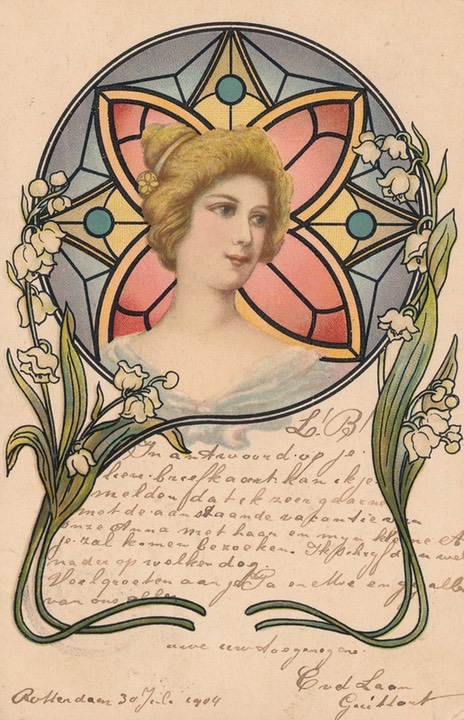 L! B!
In antwoord op je
lieve briefkaart kan ik je
melden dat ik zeer gaarne
met de aanstaande vacantie van
onze Anna met haar en mijn kleine A
je zal komen bezoeken. Ik schrijf den wel
nader op welken dag.
Veel groeten aan je Pa en Moe en gij allen
van ons allen
uwe toegenegene
C vd Laan
Rotterdam 30 Juli 1904